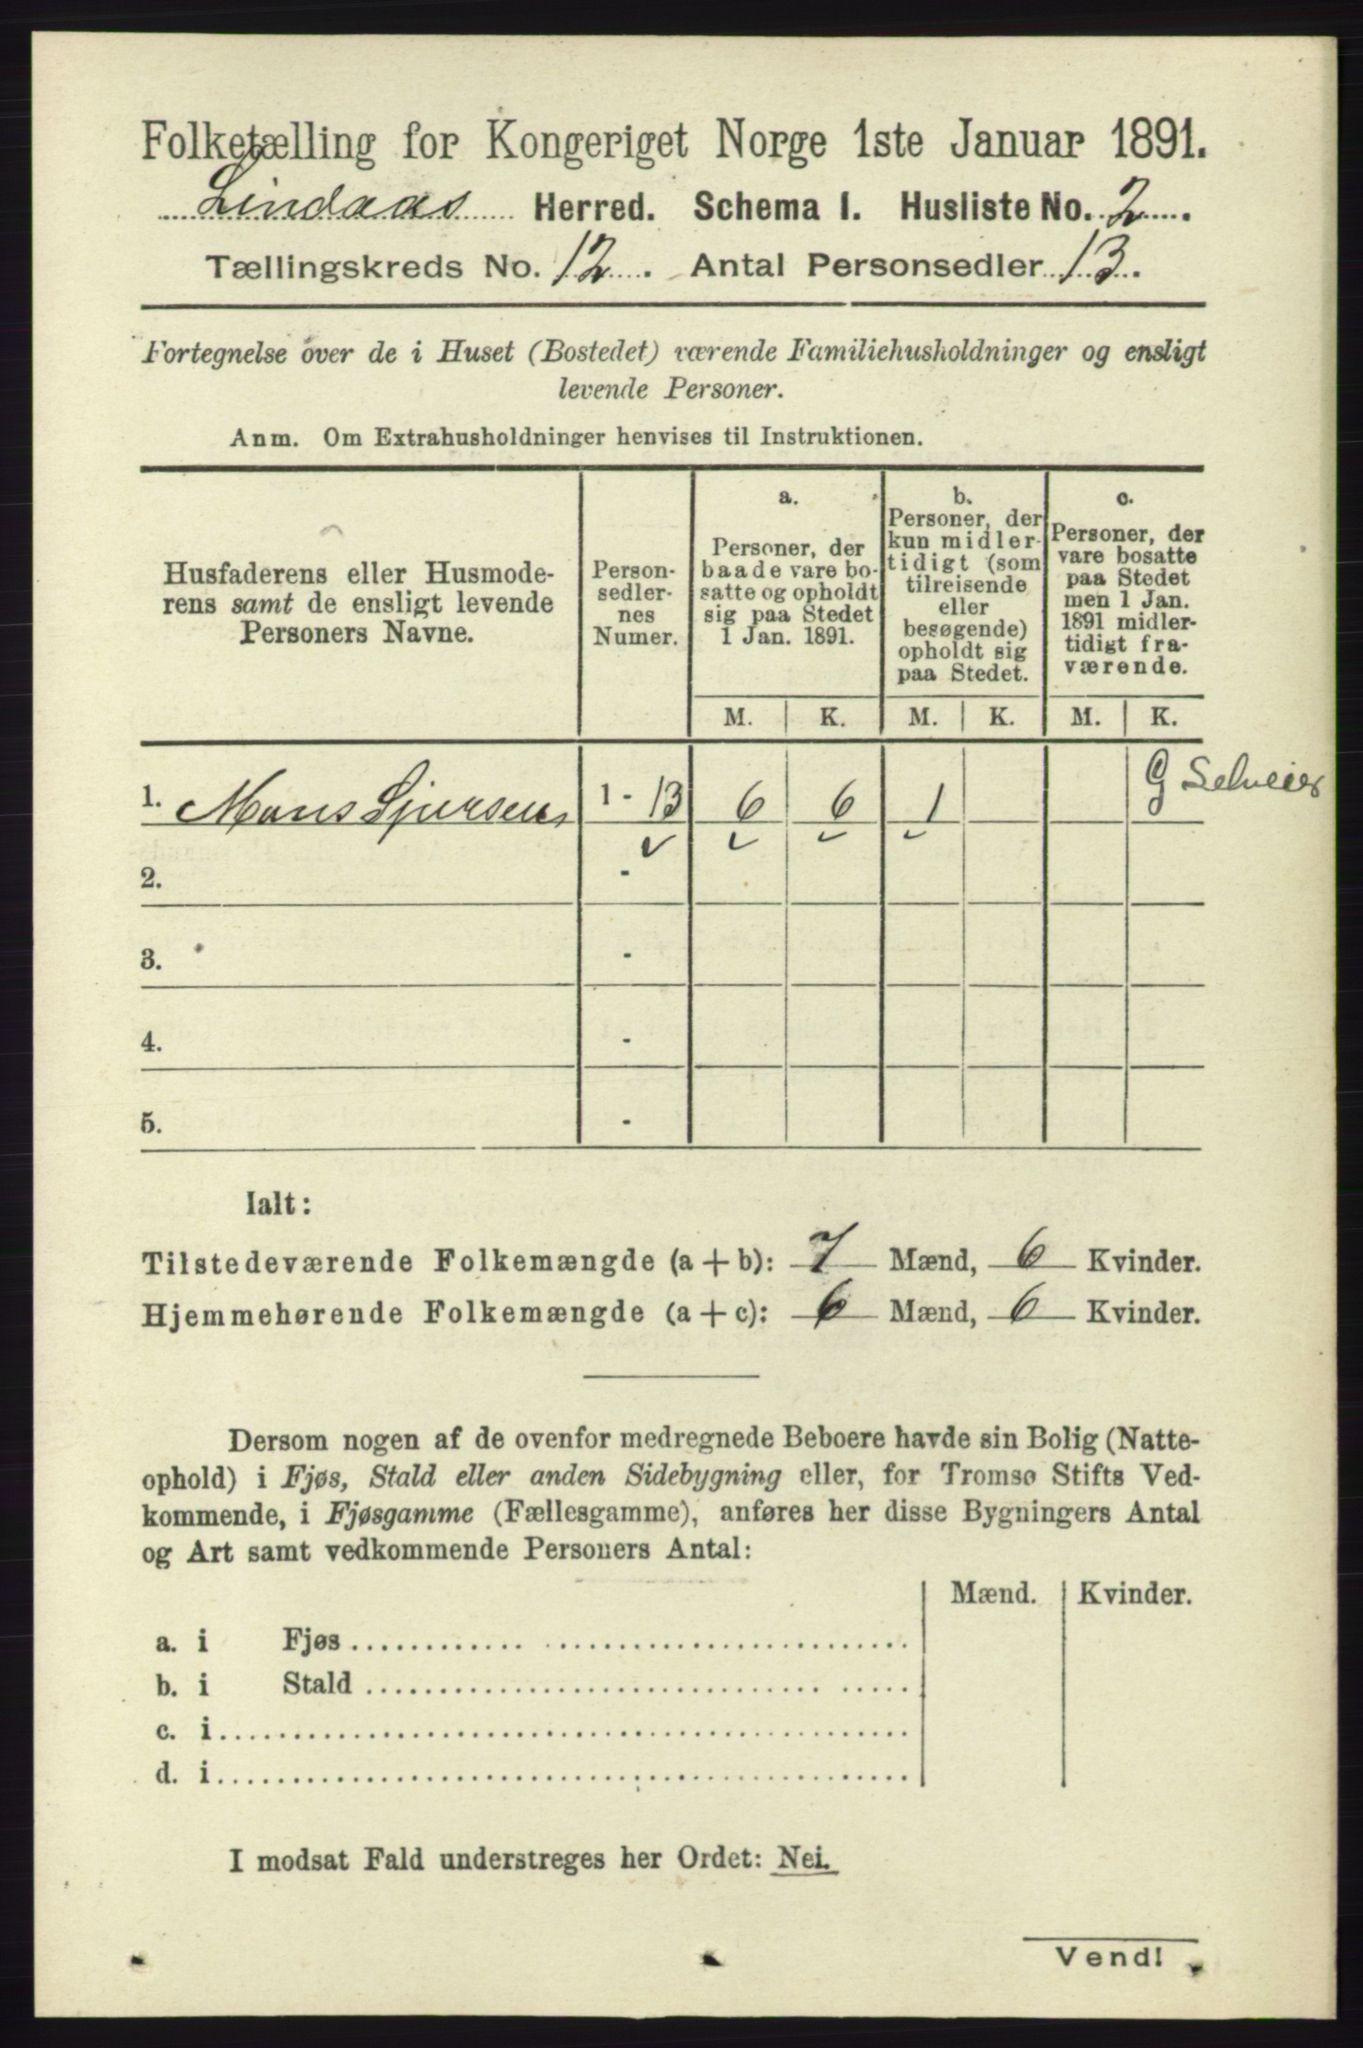 Folketælling for Kongeriget Norge 1ste Januar 1891.
Lindaas Herred. Schema I. Husliste No. 2.
Tællingskreds No. 12. Antal Personsedler 13.
Fortegnelse over de i Huset (Bostedet) værende Familiehusholdninger og ensligt
levende Personer.
Anm. Om Extrahusholdninger henvises til Instruktionen.
Husfaderens eller Husmode-
rens samt de ensligt levende
Personers Navne.
Person-
sedler-
nes
Numer.
a.
Personer, der
baade vare bo-
satte og opholdt
sig paa Stedet
1 Jan. 1891.
b.
Personer, der
kun midler-
tidigt (som
tilreisende
eller
besøgende)
opholdt sig
paa Stedet.
c.
Personer, der
vare bosatte
paa Stedet
men 1 Jan.
1891 midler-
tidigt fra-
værende.
M. K. M. K. M. K.
1. Mons Sjursen 1 - 13 6 6 1 G Selveier
2. -
3. -
4. -
5. -
Ialt:
Tilstedeværende Folkemængde (a + b): 7 Mænd, 6 Kvinder.
Hjemmehørende Folkemængde (a + c): 6 Mænd, 6 Kvinder.
Dersom nogen af de ovenfor medregnede Beboere havde sin Bolig (Natte-
ophold) i Fjøs, Stald eller anden Sidebygning eller, for Tromsø Stifts Ved-
kommende, i Fjøsgamme (Fællesgamme), anføres her disse Bygningers Antal
og Art samt vedkommende Personers Antal:
Mænd. Kvinder.
a. i Fjøs
b. i Stald
c. i
d. i
I modsat Fald understreges her Ordet: Nei.
Vend!